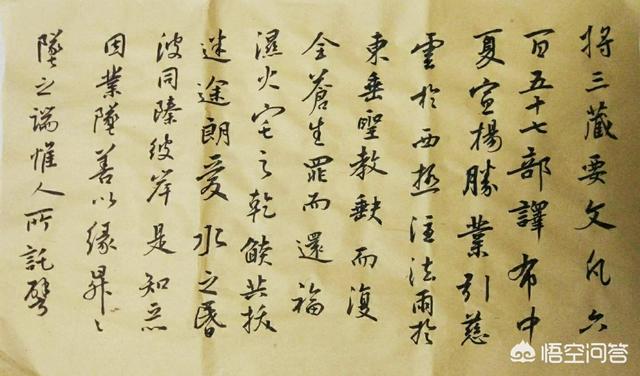 将三藏要文凡六
百五十七部譯布中
夏宣揚勝業引慈
雲於西極注法雨於
東垂聖教缺而復
全蒼生罪而還福
濕火宅之乾燄共拔
迷途朗愛水之昏
波同臻彼岸是知惡
因業墜善以緣昇昇
墜之端惟人所託譬
悟空问答